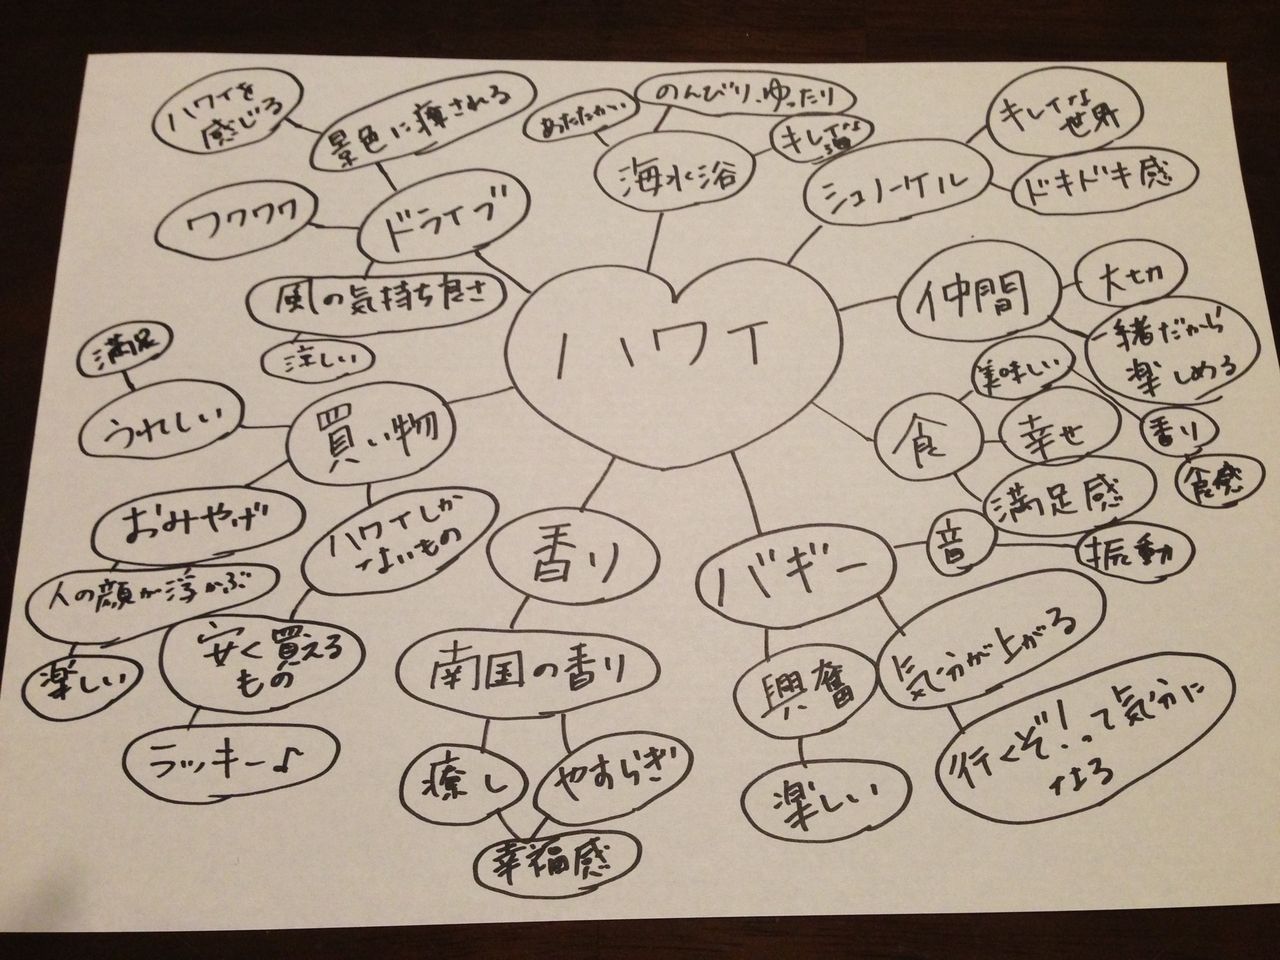 ハワイを
感じる
景色に癒される
あたたかい
のんびり、ゆったり
キレイな
海
キレイな
世界
海水浴
シュノーケル
ドキドキ感
ワクワク
ドライブ
風の気持ち良さ
涼しい
ハワイ
仲間
大切
一緒だから
楽しめる
満足
うれしい
買い物
美味しい
食
幸せ
香り
食感
満足感
おみやげ
ハワイしか
ないもの
香り
バギー
音
振動
人の顔が浮かぶ
楽しい
安く買える
もの
ラッキー♪
南国の香り
癒し
やすらぎ
幸福感
興奮
楽しい
気分が上がる
行くぞ!って気分に
なる